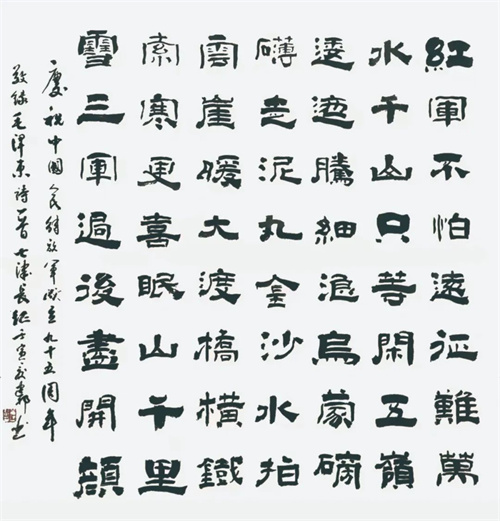 紅軍不怕遠征難萬
水千山只等閑五嶺
逶迤騰細浪烏蒙磅
礴走泥丸金沙水拍
雲崖暖大渡橋橫鐵
索寒更喜眠山千里
雪三軍過後盡開顏
慶祝中國人民解放軍成立九十五周年
敬錄毛澤東詩一首七律長征壬寅夏书